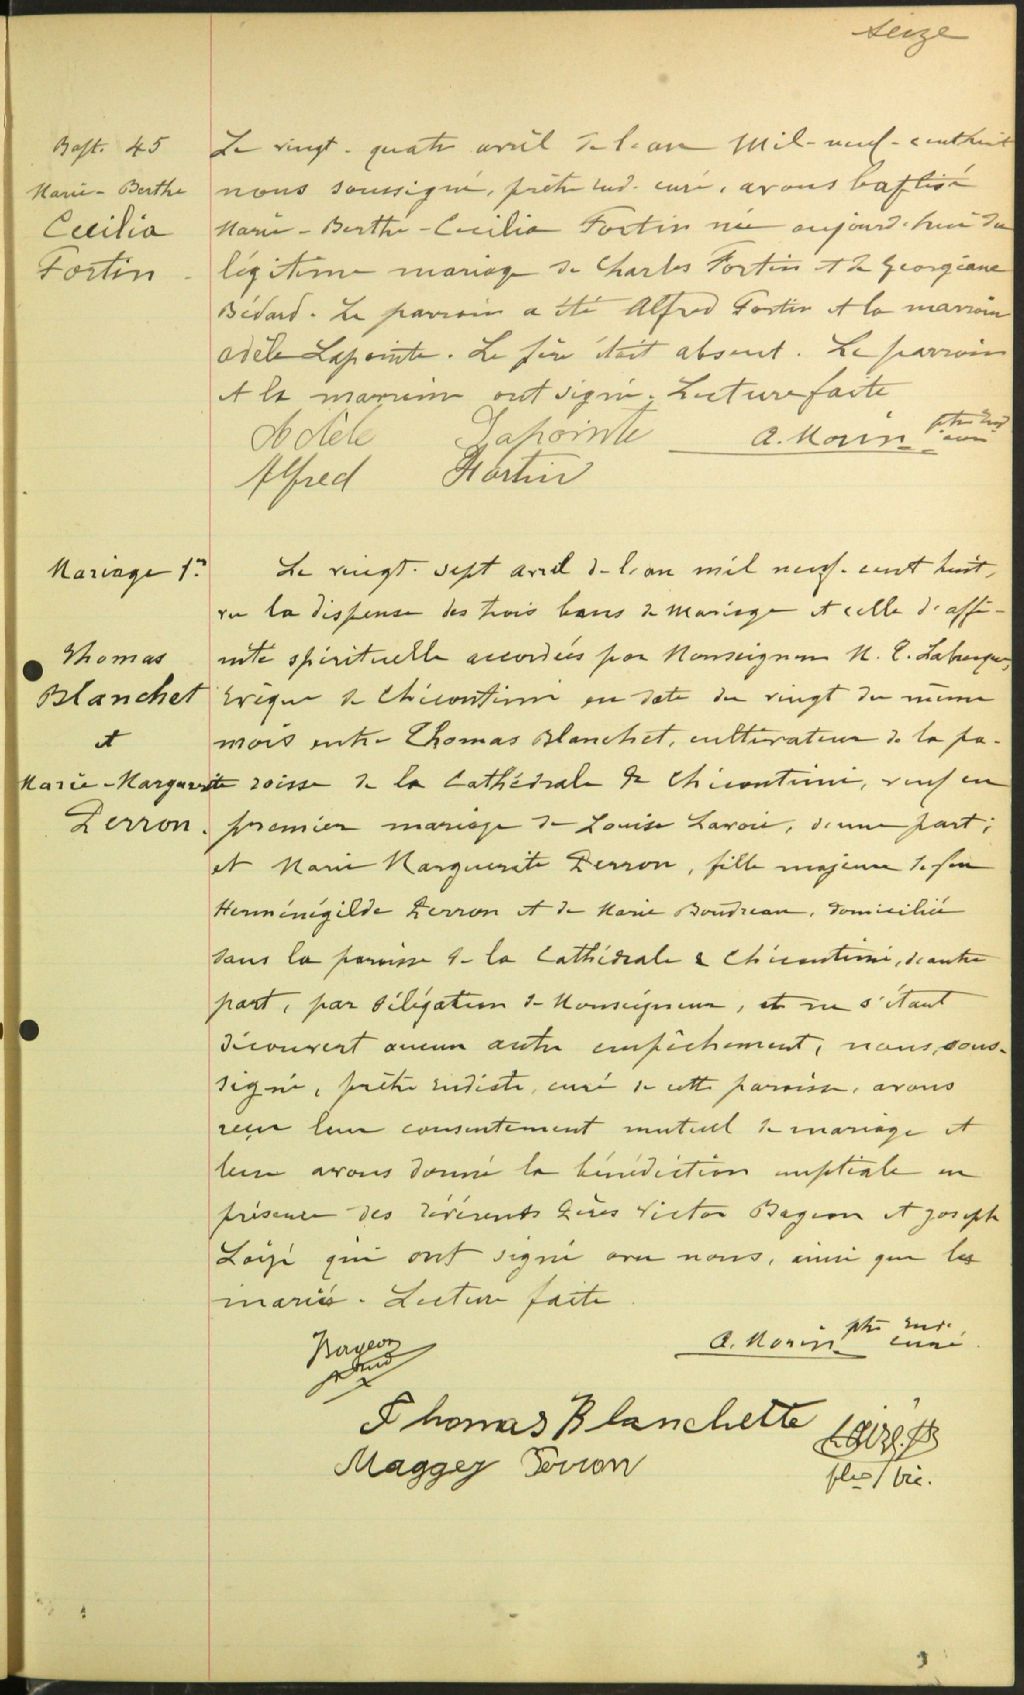 seize
Bapt. 45
Marie-Berthe
Cecilia
Fortin
Le vingt-quatre avril de l'an Mil-neuf-cent huit
nous soussigné, prêtre eud. curé, avons baptisé
Marie-Berthe-Cecilia Fortin née aujourd'hui du
légitime mariage de Charles Fortin et de Georgiana
Bédard. Le parrain a été Alfred Fortin et la marraine
Adèle Lapointe. Le père était absent. Le parrain
et la marraine ont signé. Lecture faite
Adèle Lapointe A. Morin ptre eud curé
Alfred Fortin
Mariage 1er
Thomas
Blanchet
et
Marie-Marguerite
Perron.
Le vingt-sept avril de l'an mil neuf-cent huit,
vu la dispense des trois bans de mariage et celle d'affi-
nité spirituelle accordées par Monseigneur M. T. Labrecque,
Evêque de Chicoutimi en date du vingt du même
mois entre Thomas Blanchet, cultivateur de la pa-
roisse de la Cathédrale de Chicoutimi, veuf en
premier mariage de Louise Lavoie, d'une part;
et Marie Marguerite Perron, fille majeure de feu
Herménégilde Perron et de Marie Boudreau, domiciliée
dans la paroisse de la Cathédrale de Chicoutimi, d'autre
part, par délégation de Monseigneur, et ne s'étant
découvert aucun autre empêchement, nous, sous-
signé, prêtre eudiste, curé de cette paroisse, avons
reçu leur consentement mutuel de mariage et
leur avons donné la bénédiction nuptiale en
présence des révérends Pères Victor Bageon et Joseph
Loizé qui ont signé avec nous, ainsi que les
mariés. Lecture faite
A. Morin ptre eud. curé
Thomas Blanchette
Loizé
Maggey Perron
ptre vic.